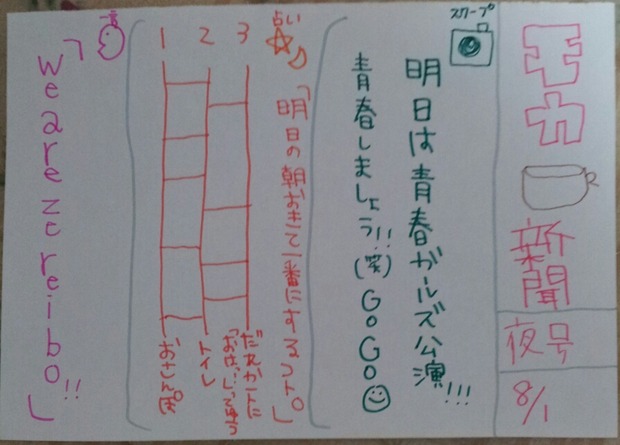 モカ
新聞
夜号
8/1
スクープ
明日は青春ガールズ公演!!!
青春しましょう!!(笑)GoGo
占い
「明日の朝おきて一番にするコト。」
3
2
1
だれかントに
「おはよ…」ってゆう
トイレ
おさんぽ
「we are ze reibo!!」